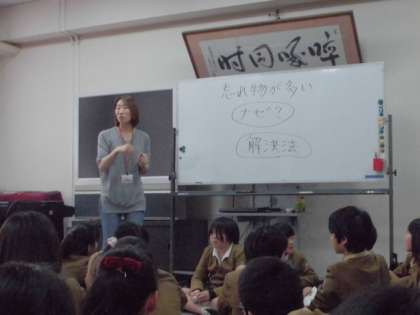 啐啄同時
忘れ物が多い
ナゼ?
解決法